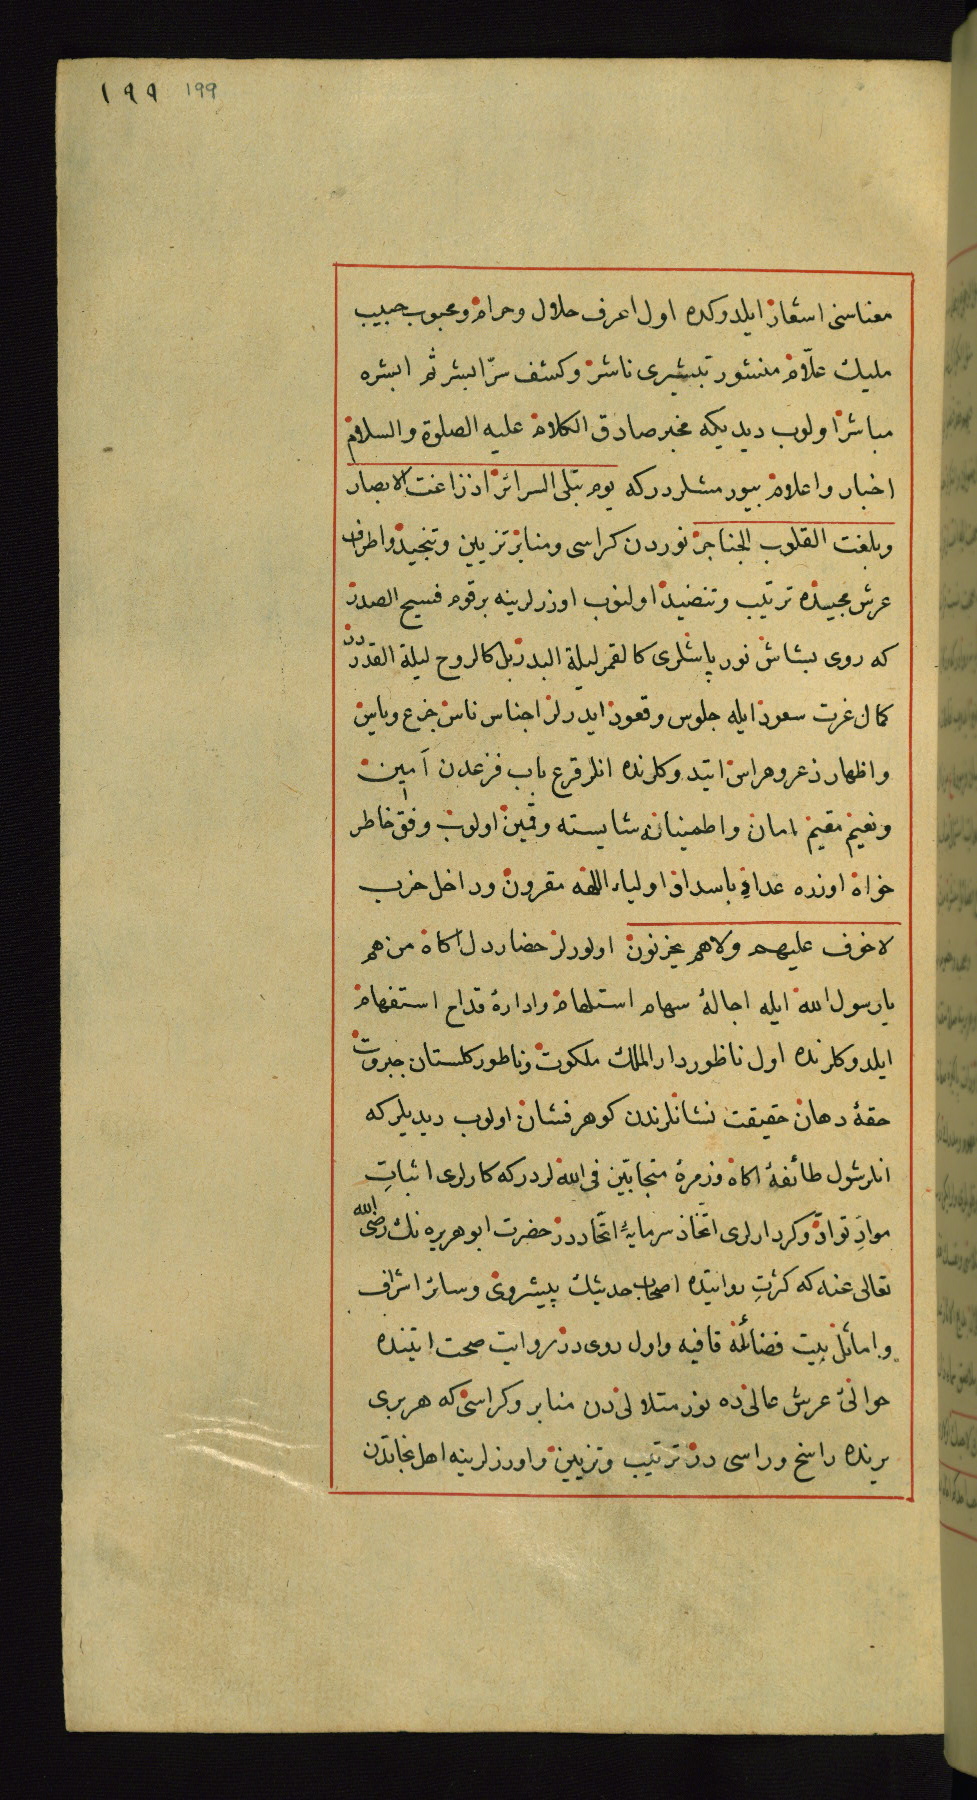 ١٩٩ 199
معناسنی اشعار ایلدوکده اول اعرف حلال وحرام ومحبوب حبیب
ملیك علّام منشور تبشیری ناشر وکشف سرّ البشر ثم البشره
مباشر اولوب دیدیکه مخبر صادق الکلام علیه الصلوة والسلام
اخبار واعلام بیورمشلردرکه یوم تبلی السرائر اذ زاغت الابصار
وبلغت القلوب الحناجر نوردن کراسی ومنابر تزیین وتنجید واطراف
عرش مجیده ترتیب وتنضید اولنوب اوزرلرینه برقوم فسیح الصدر
که روی بشاش نور پاشلری کالقمر لیلة البدر بل کالروح لیلة القدر در
کمال عزت سعود ایله جلوس وقعود ایدرلر اجناس ناس جزع ویاس
واظهار ذعر وهراس ایتدوکلرنده انلر قرع باب فزعدن آمین
ونعیم مقیم امان واطمینانه شایسته وقمین اولوب وفق خاطر
خواه اوزره عداد باسداد اولیاء اللهه مقرون وداخل حزب
لا خوف علیهم ولاهم یحزنون اولورلر حضار دل آکاه من هم
یارسول الله ایله اجالهٔ سهام استلهام وادارهٔ قداح استفهام
ایلدوکلرنده اول ناظور دار الملك ملکوت وناطور کلستان جبروت
حقهٔ دهان حقیقت نشانلرندن کوهر فشان اولوب دیدیلرکه
انلر شول طائفهٔ آکاه وزمرهٔ متحابّین فی الله لردرکه کارلری اثباتِ
موادِ توادّ وکردارلری اتّخاذ سرمایهٔ اتّحاددر حضرت ابوهریره نك رضی الله
تعالی عنه که کثرتِ روایتده اصحاب حدیثك پیشروی وسائر اشراف
واماثل بیت فضائله قافیه واول روی در روایت صحت ایتنده
حوالیٔ عرش عالیده نور متلالیدن منابر وکراسی که هربری
یرنده راسخ وراسی در ترتیب وتزیین واوزرلرینه اهل نجاتدن